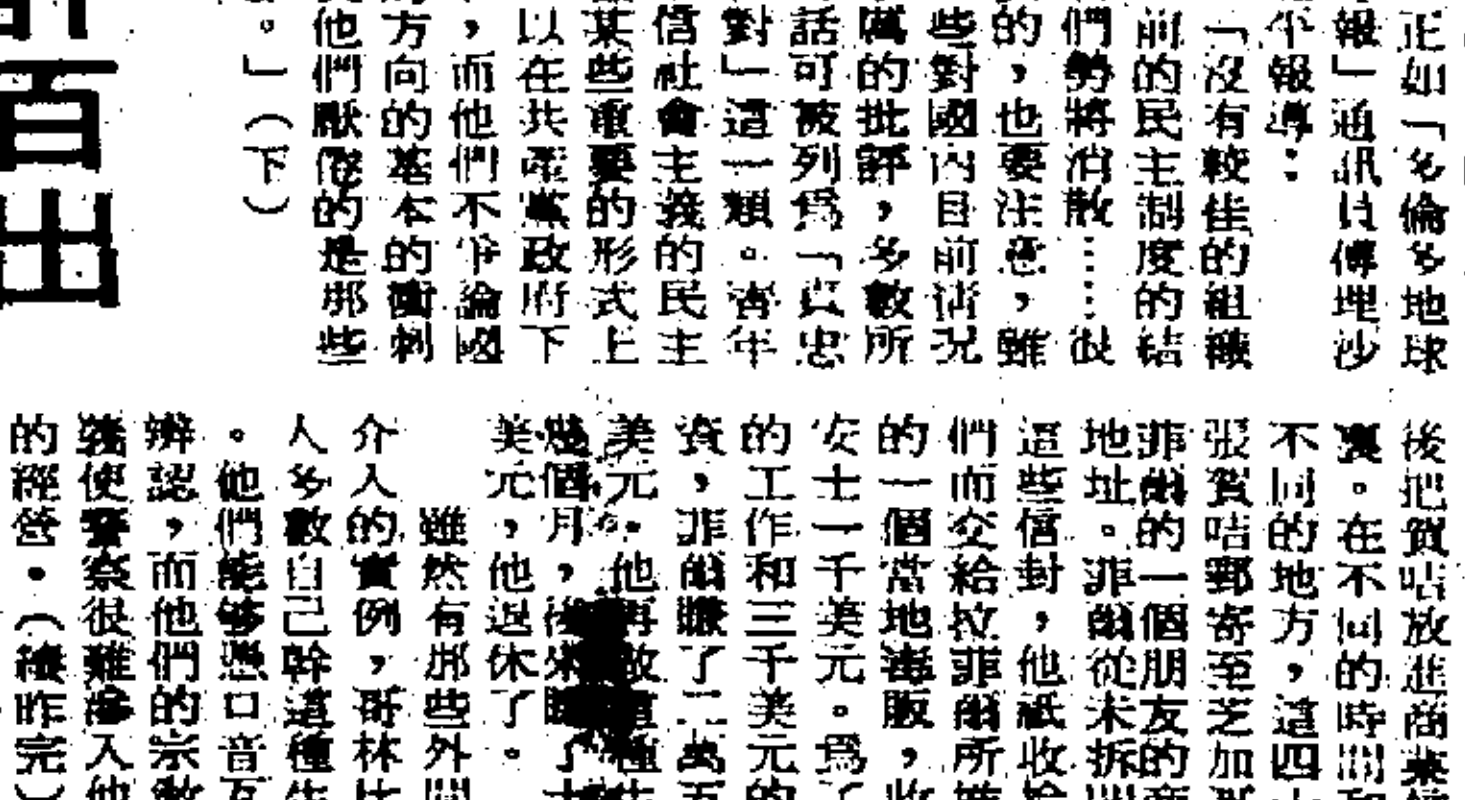 正如「多倫多地球
報」通訊員傅埋沙
不報導：
「沒有較佳的組織
前的民主制度的結
們勢將消散……很
的，也要注意，雖
些對國內目前情況
的批評，多數所
話可被列爲「員忠
對」這一類。青年
信社會主義的民主
某些重要的形式上
以在共產黨政府下
，而他們不爭論國
方向的基本的衝刺
他們厭倦的是那些
。」（下）
百出
後把賀咭放進商業
裏。在不同的時間和
不同的地方，這四
張賀咭郵寄至芝加哥
菲爾的一個朋友的商
地址。菲爾從未拆開
這些信封，他祇收給
們而交給拉菲爾所
的一個當地毒販，收
安士一千美元。爲了
的工作和三千美元的
資，菲爾賺了二萬五
美元。他再做這種
幾個月，後來賺了十
美元，他退休了。
雖然有那些外間
介入的實例，哥林比
人多數自己幹這種生
。他們能够憑口音互
辨認，而他們的宗教
義使警察很難滲入他
的經營。（續昨完）